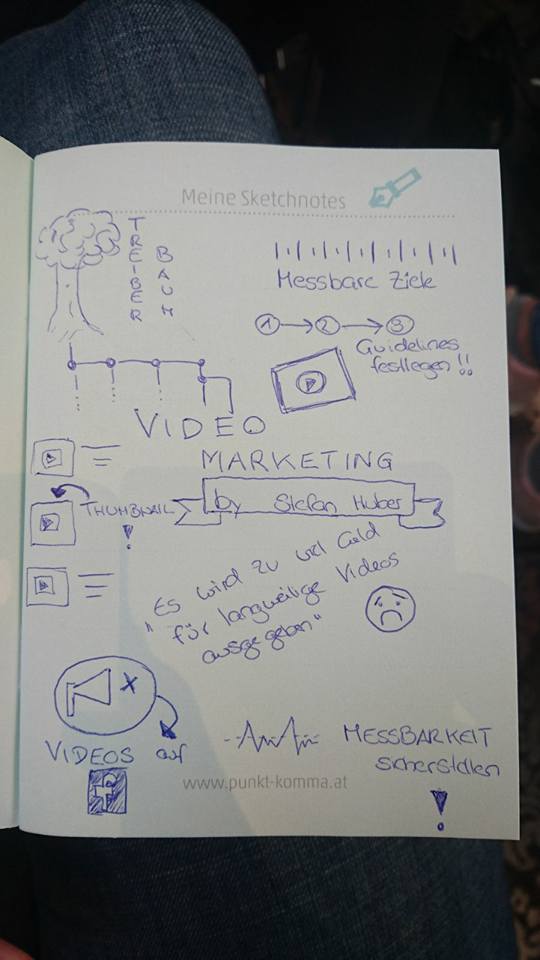 Meine Sketchnotes
TREIBER
BAUM
Messbare Ziele
1 2 3
Guidelines
festlegen!!
VIDEO
MARKETING
by Stefan Huber
THUMBNAIL
!
"Es wird zu viel Geld
für langweilige Videos
ausgegeben"
x
VIDEOS auf
f
MESSBARKEIT
sicherstellen
!
www.punkt-komma.at